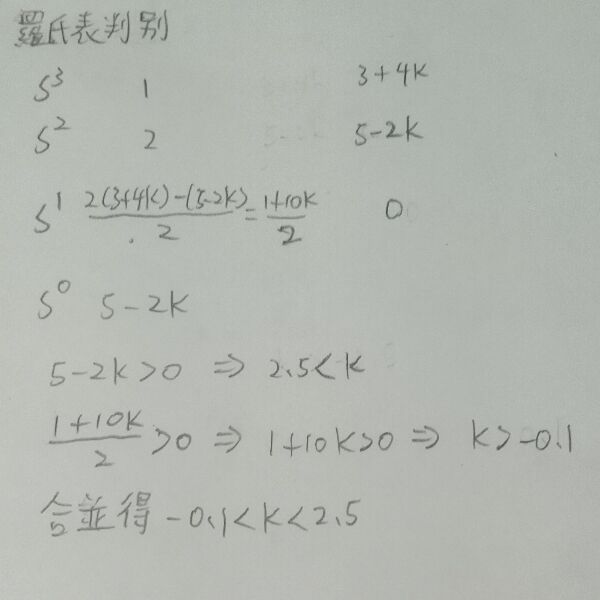 羅氏表判別
S³ 1 3+4K
S² 2 5-2K
S¹ \frac{2(3+4K)-(5-2K)}{2} = \frac{1+10K}{2} 0
S⁰ 5-2K
5-2K>0 ⇒ 2.5<K
\frac{1+10K}{2}>0 ⇒ 1+10K>0 ⇒ K>-0.1
合並得 -0.1<K<2.5